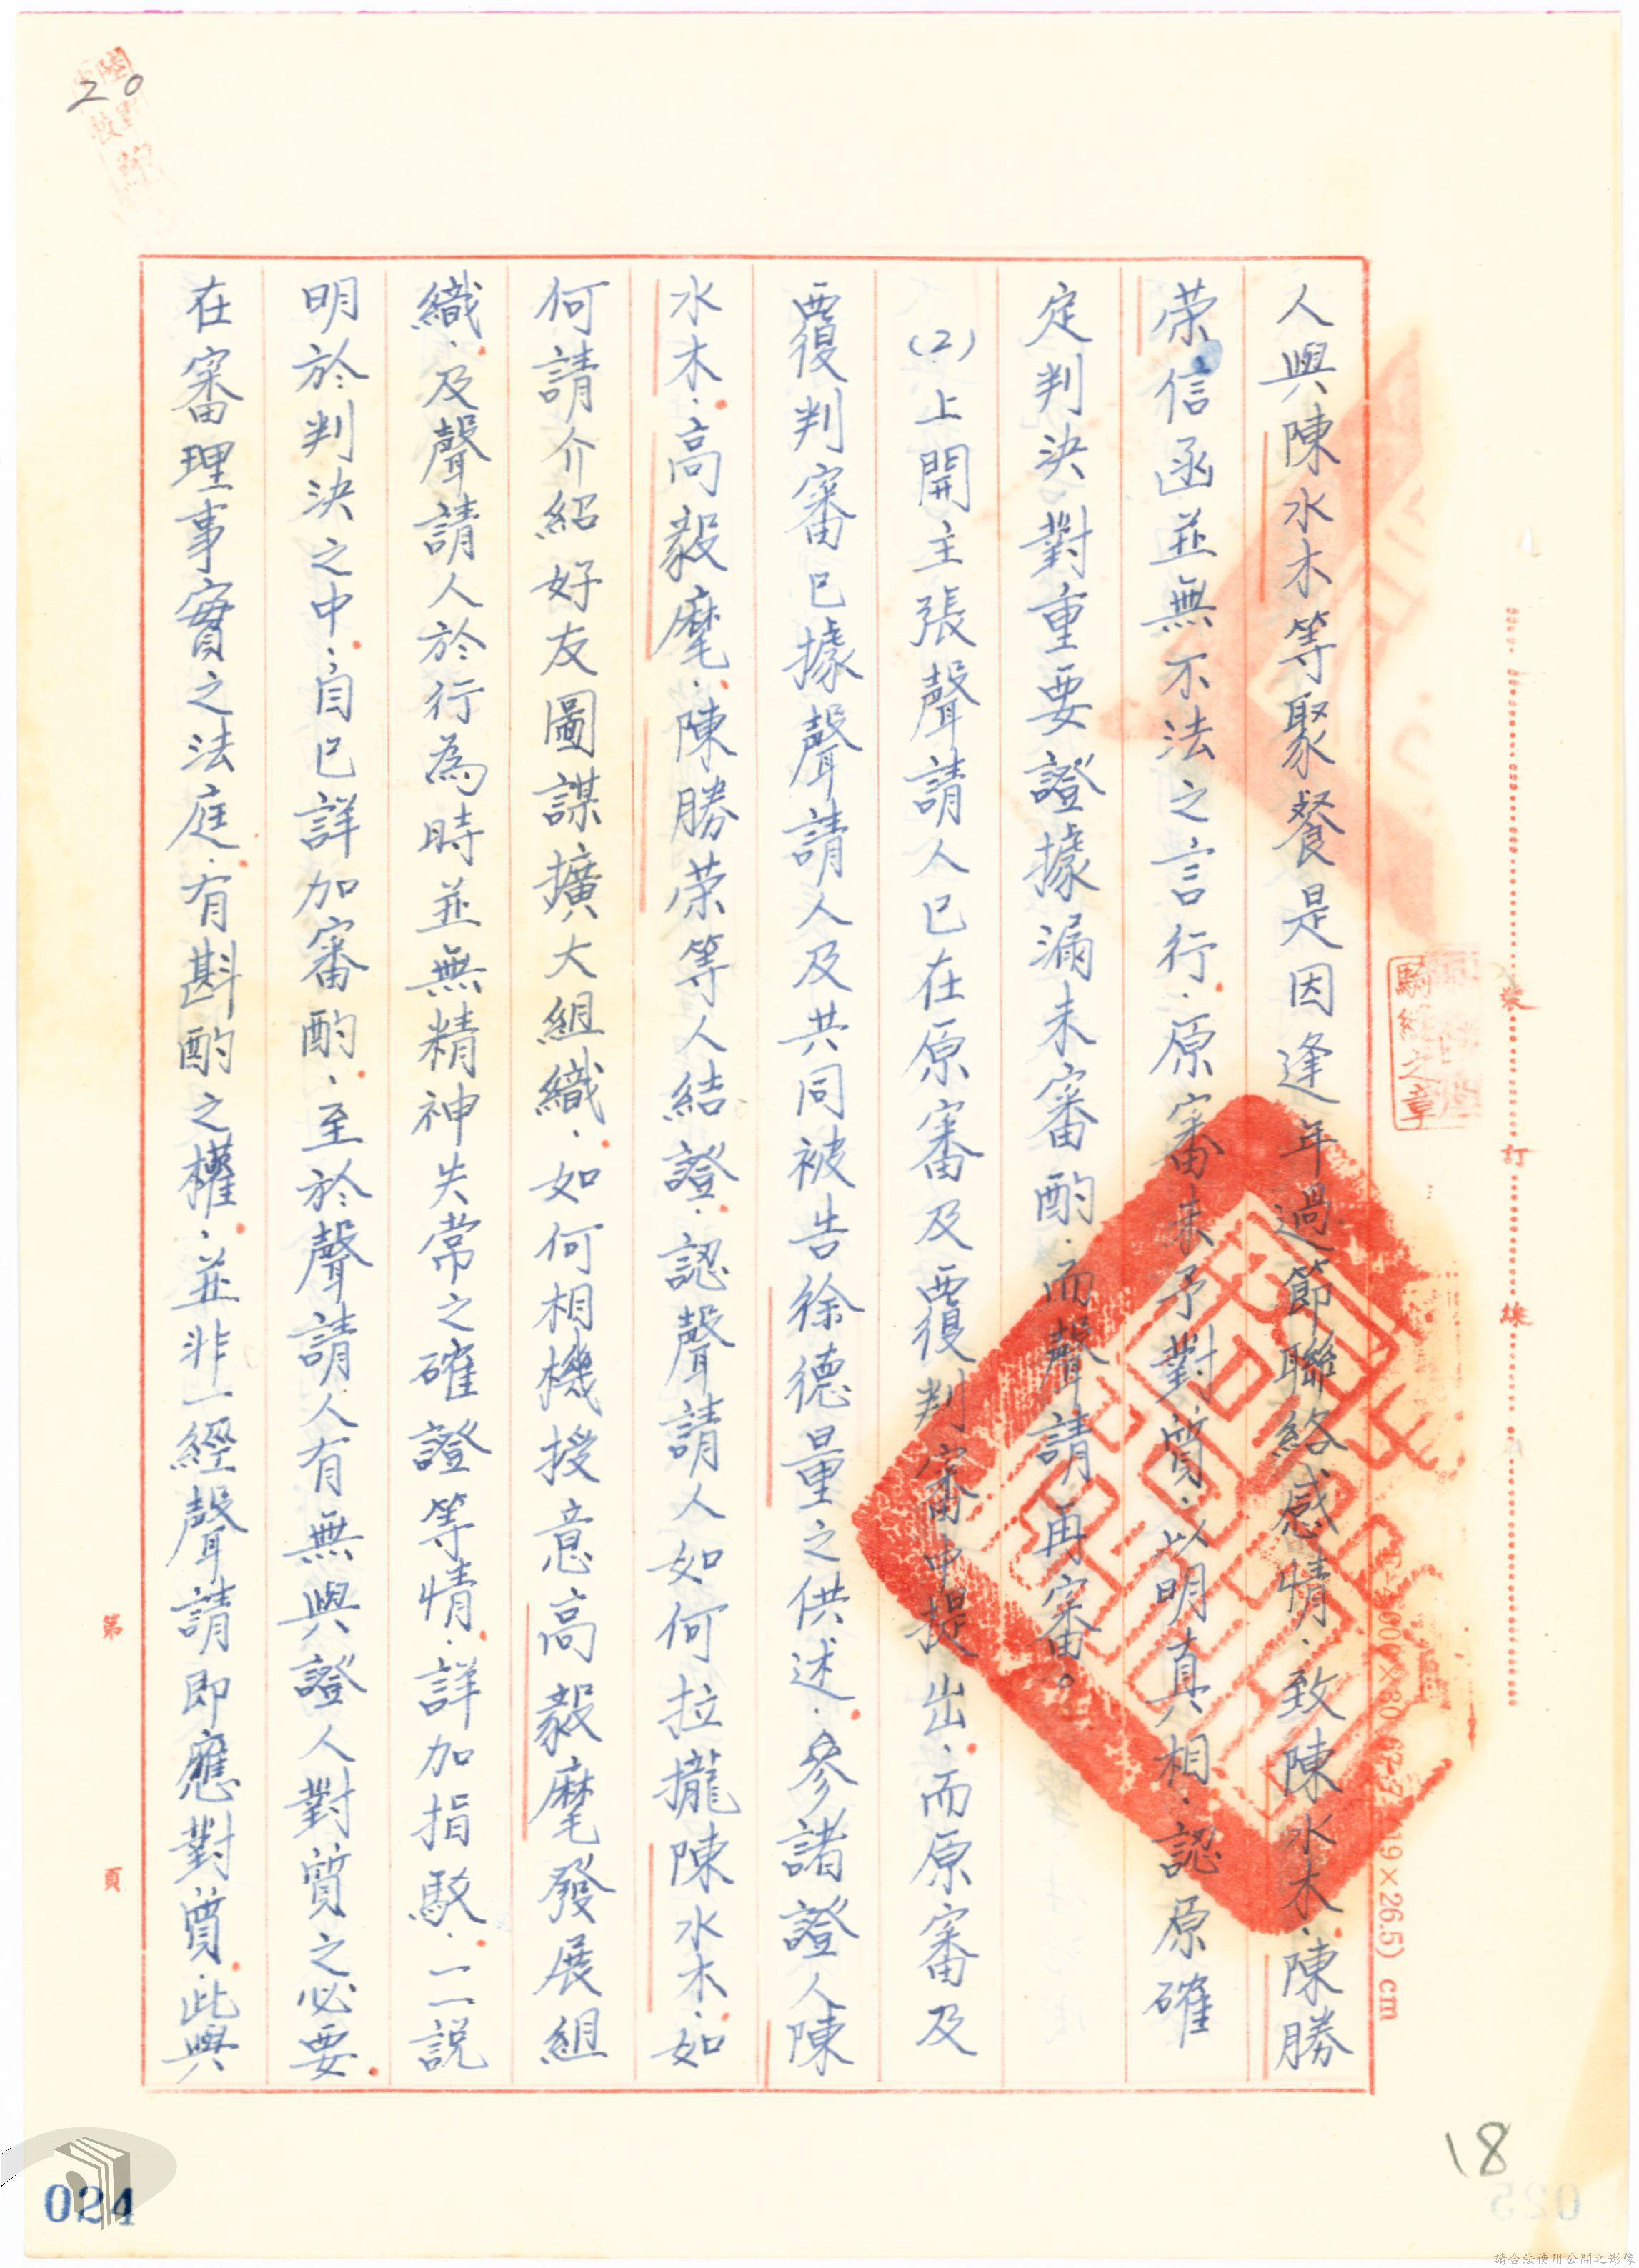 20
人與陳水木等聚餐是因逢年過節聯絡感情，致陳水木，陳勝
荣，信函並無不法之言行，原審未予對質，以明真相，認原確
定判決對重要證據漏未審酌，而聲請再審。
(2)上開主張聲請人已在原審及覆判審中提出，而原審及
覆判審已據聲請人及共同被告徐德量之供述，參諸證人陳
水木，高毅麾，陳勝荣等人結證，認聲請人如何拉攏陳水木，如
何請介紹好友圖謀擴大組織，如何相機授意高毅麾發展組
織，及聲請人於行為時並無精神失常之確證等情，詳加指駁，一一說
明於判決之中，自已詳加審酌，至於聲請人有無與證人對質之必要
在審理事實之法庭，有斟酌之權，並非一經聲請即應對質，此與
騎縫之章
裝訂線
19×26.5) cm
第 頁
18
024
025
請合法使用公開之影像